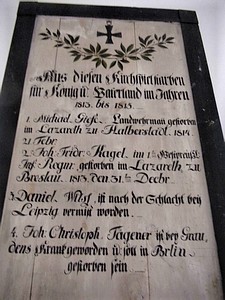 Aus diesem Kirchspiel starben
für König u. Vaterland im Jahren
1813. bis 1815.
1. Michael Landwehrman gestorben
im Lazareth zu Halberstadt. 1814.
21 Febr.
2. Joh. Fridr. Hagel. im 1ten Westpreuß.
Inf. Regim. gestorben im Lazareth zu
Breslau. 1813. den 31ten Decbr.
3. Daniel ist nach der Schlacht bey
Leipzig vermißt worden.
4. Joh. Christoph. Fagener ist bey
dens Krank geworden u. soll in Brlin
gestorben sein